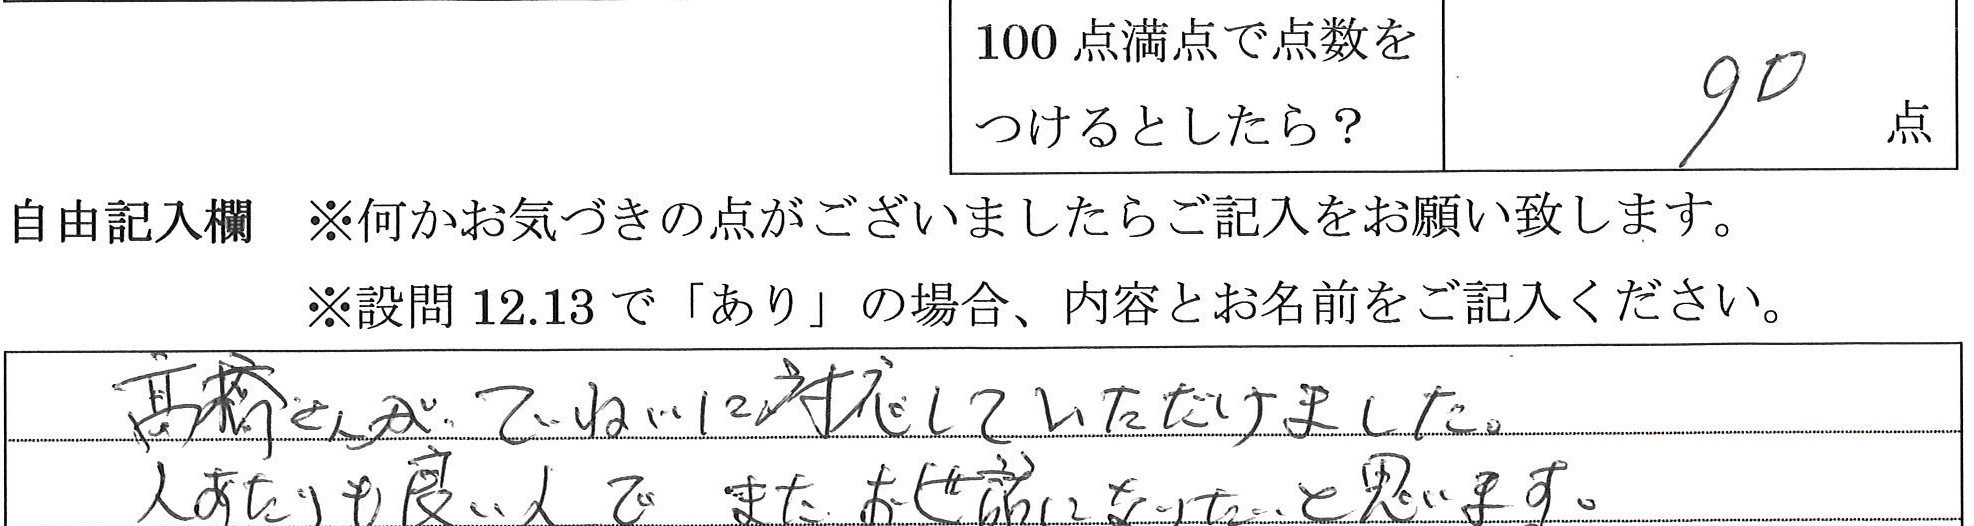 100点満点で点数を
つけるとしたら？
90
点
自由記入欄 ※何かお気づきの点がございましたらご記入をお願い致します。
※設問12.13で「あり」の場合、内容とお名前をご記入ください。
髙橋さんが、ていねいに対応していただけました。
人あたりも良い人で またお世話になりたいと思います。